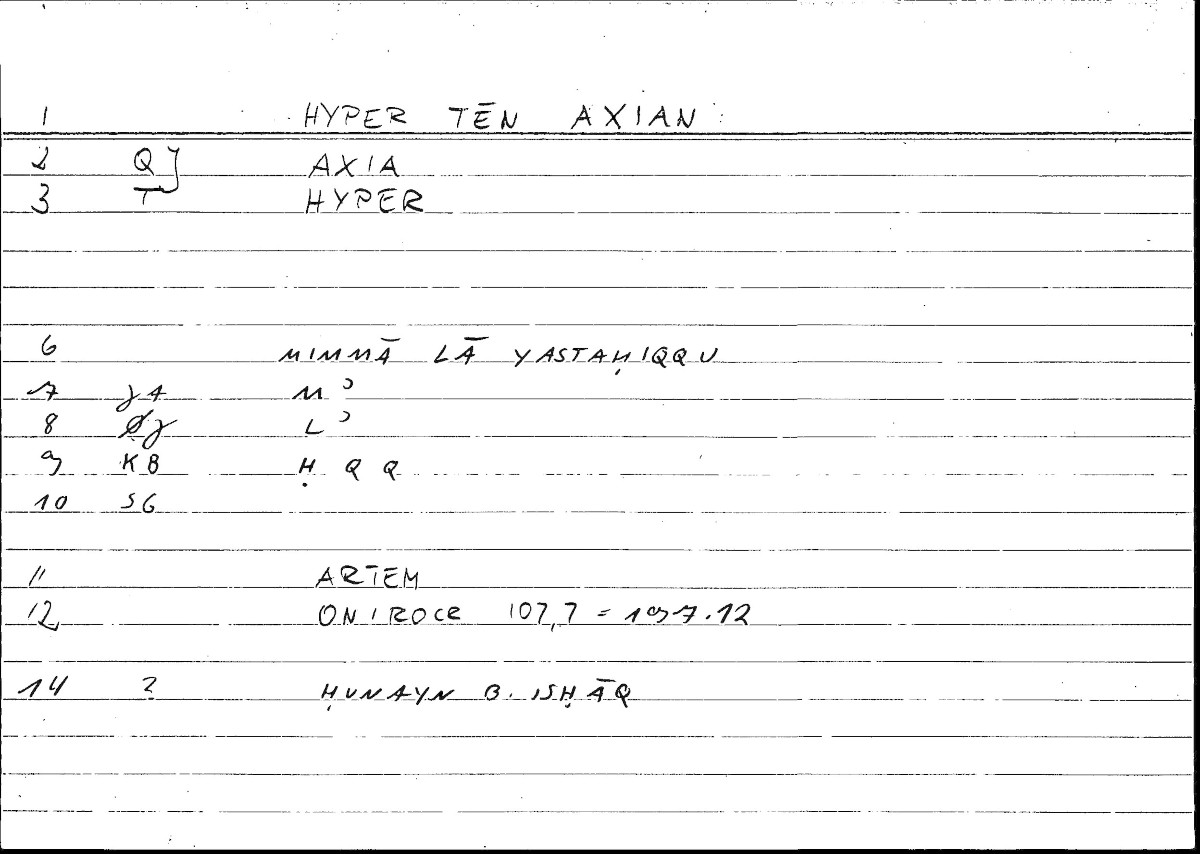 1 HYPER TĒN AXIAN
2 Q} AXIA
3 T HYPER
6 MIMMĀ LĀ YASTAḤIQQU
7 γA Mʾ
8 γ Lʾ
9 KB Ḥ Q Q
10 SG
11 ARTEM
12 ONIROCR 107,7 = 197.12
14 2 ḤUNAYN B. ISḤĀQ